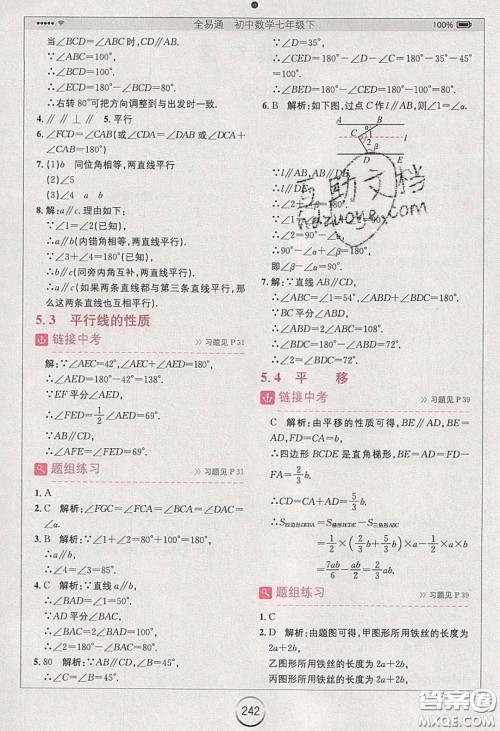 全易通 初中数学七年级下
100%
当∠BCD=∠ABC时,AB∥CD.
∵∠ABC=100°,
∴∠BCD=100°,
∴∠ECD=180°-∠BCD=80°.
∴右转80°可把方向调整到与出发时一致.
4.∥ ∥ ⊥ ∥ 5.平行
6.∠FCD=∠CAB(或∠CDA=∠DAB或∠CAB+∠ACD=180°)
7.(1)b 同位角相等,两直线平行
(2)∠5
(3)∠4 a b
8.解:a∥c.理由如下:
∵∠1=∠2(已知),
∴a∥b(内错角相等,两直线平行).
∵∠3+∠4=180°(已知),
∴b∥c(同旁内角互补,两直线平行),
∴a∥c(如果两条直线都与第三条直线平行,那么这两条直线也互相平行).
5.3 平行线的性质
链接中考
>习题见P31
解:∵∠AEC=42°,∠AEC+∠AED=180°,
∴∠AED=180°-42°=138°.
∵EF平分∠AED,
∴∠FED=1/2∠AED=69°.
∵AB∥CD,
∴∠AFE=∠FED=69°.
题组练习
>习题见P31
1.A
2.C 解析:∠FGC=∠FCA=∠FAC=∠DAC=∠a.
3.B 解析:∵∠1+∠2=80°+100°=180°,
∴a∥b,
∴∠4=∠3=85°.
4.C 解析:∵直线a∥b,
∴∠BAD=∠1=50°.
∵AD平分∠BAC,
∴∠BAC=2∠BAD=100°,
∴∠2=180°-∠BAC=80°.
5.80 解析:∵AB∥CD,∠B=45°,
∴∠C=∠B=45°.
∵∠D=35°,
∴∠CED=180°-∠C-∠D=100°,
∴∠BED=180°-∠CED=180°-100°=80°.
6.B 解析:如下图,过点C作l∥AB,则∠1=∠α.
A B
l
C
1
2
D E
∵l∥AB,AB∥DE,
∴l∥DE,
∴∠2=180°-∠β.
∵∠1+∠2=90°,
∴∠2=90°-∠α,
∴90°-∠α=180°-∠β,
即∠β-∠α=90°.
7.72° 解析:∵直线AB∥CD,
∴∠ABC=∠1=54°,∠ABD+∠BDC=180°.
∵BC平分∠ABD,
∴∠ABD=2∠ABC=108°,
∴∠BDC=180°-∠ABD=72°,
∴∠2=∠BDC=72°.
5.4 平 移
链接中考
>习题见P39
C 解析:由平移的性质可得,BE∥AD,BE=AD,
∴四边形BCDE是直角梯形,CA=DF=BC=2/3b,
∴CD=CA+AD=5/3b,
∴S四边形BCDE=S梯形BCDE
=1/2×(2/3b+5/3b)×2/3b
=1/2×7/3b×2/3b
=7/9b².
题组练习
>习题见P39
1.C
2.D 解析:由题图可得,甲图形所用铁丝的长度为2a+2b,
乙图形所用铁丝的长度为2a+2b,
丙图形所用铁丝的长度为2a+2b,
242
互助文档
hdzuoye.com
答案圈
MXQE.COM